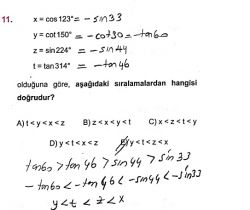 11. x = cos 123° = - sin 33
y = cot 150° = - cot 30 = - tan 60
z = sin 224° = - sin 44
t = tan 314° = - tan 46
olduğuna göre, aşağıdaki sıralamalardan hangisi
doğrudur?
A) t < y < x < z B) z < x < y < t C) x < z < t < y
D) y < t < x < z E) y < t < z < x
tan 60 > tan 46 > sin 44 > sin 33
- tan 60 < - tan 46 < - sin 44 < - sin 33
y < t < z < x